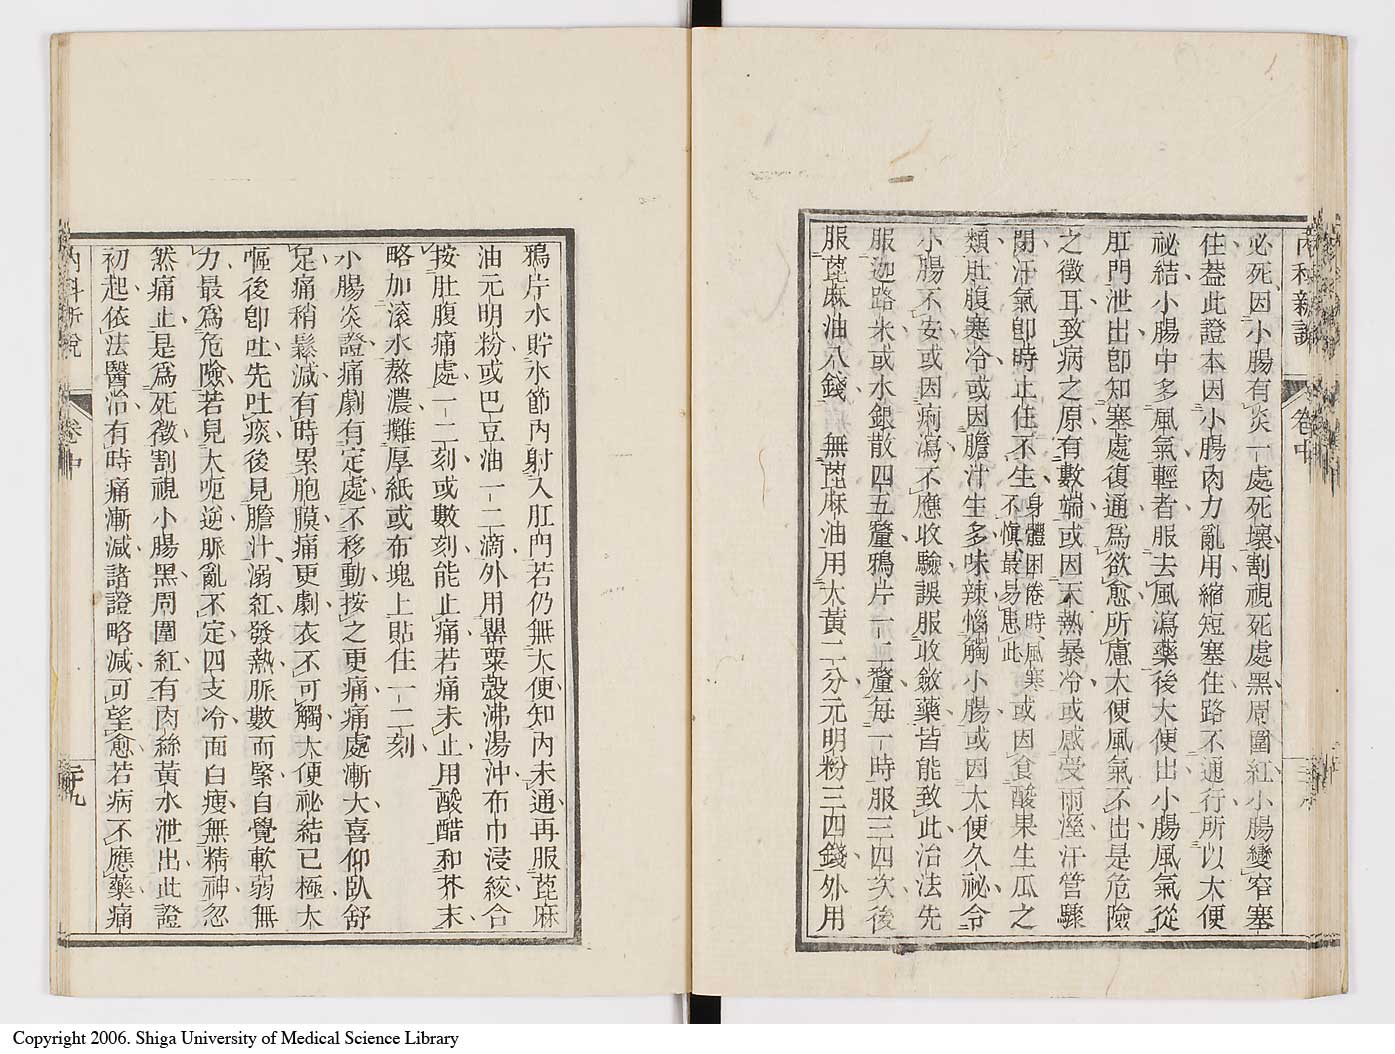 內科新說
卷中
必死因小腸有炎一處死壞割視死處黑周圍紅小腸變窄塞
住蓋此證本因小腸肉力亂用縮短塞住路不通行所以大便
祕結小腸中多風氣輕者服去風瀉藥後大便出小腸風氣從
肛門泄出卽知塞處復通爲欲愈所慮大便風氣不出是危險
之徵耳致病之原有數端或因天熱暴冷或感受雨溼汗管驟
閉汗氣卽時止住不生身體困倦時風寒不愼最易患此或因食酸果生瓜之
類肚腹寒冷或因膽汁生多味辣惱觸小腸或因大便久祕令
小腸不安或因痢瀉不應收驗誤服收斂藥皆能致此治法先
服迦路米或水銀散四五釐鴉片一二釐每一時服三四次後
服蓖麻油八錢 無蓖麻油用大黃二分元明粉三四錢外用
鴉片水貯水節內射入肛門若仍無大便知內未通再服蓖麻
油元明粉或巴豆油一二滴外用罌粟殼沸湯沖布巾浸絞合
按肚腹痛處一二刻或數刻能止痛若痛未止用酸醋和芥末
略加滾水熬濃攤厚紙或布塊上貼住一二刻
小腸炎證痛劇有定處不移動按之更痛痛處漸大喜仰臥舒
足痛稍鬆減有時累胞膜痛更劇衣不可觸大便祕結已極大
嘔後卽吐先吐痰後見膽汁溺紅發熱脈數而緊自覺軟弱無
力最爲危險若見大呃逆脈亂不定四支冷面白瘦無精神忽
然痛止是爲死徵割視小腸黑周圍紅有肉絲黃水泄出此證
初起依法醫治有時痛漸減諸證略減可望愈若病不應藥痛
內科新說
卷中
二十九
Copyright 2006. Shiga University of Medical Science Library